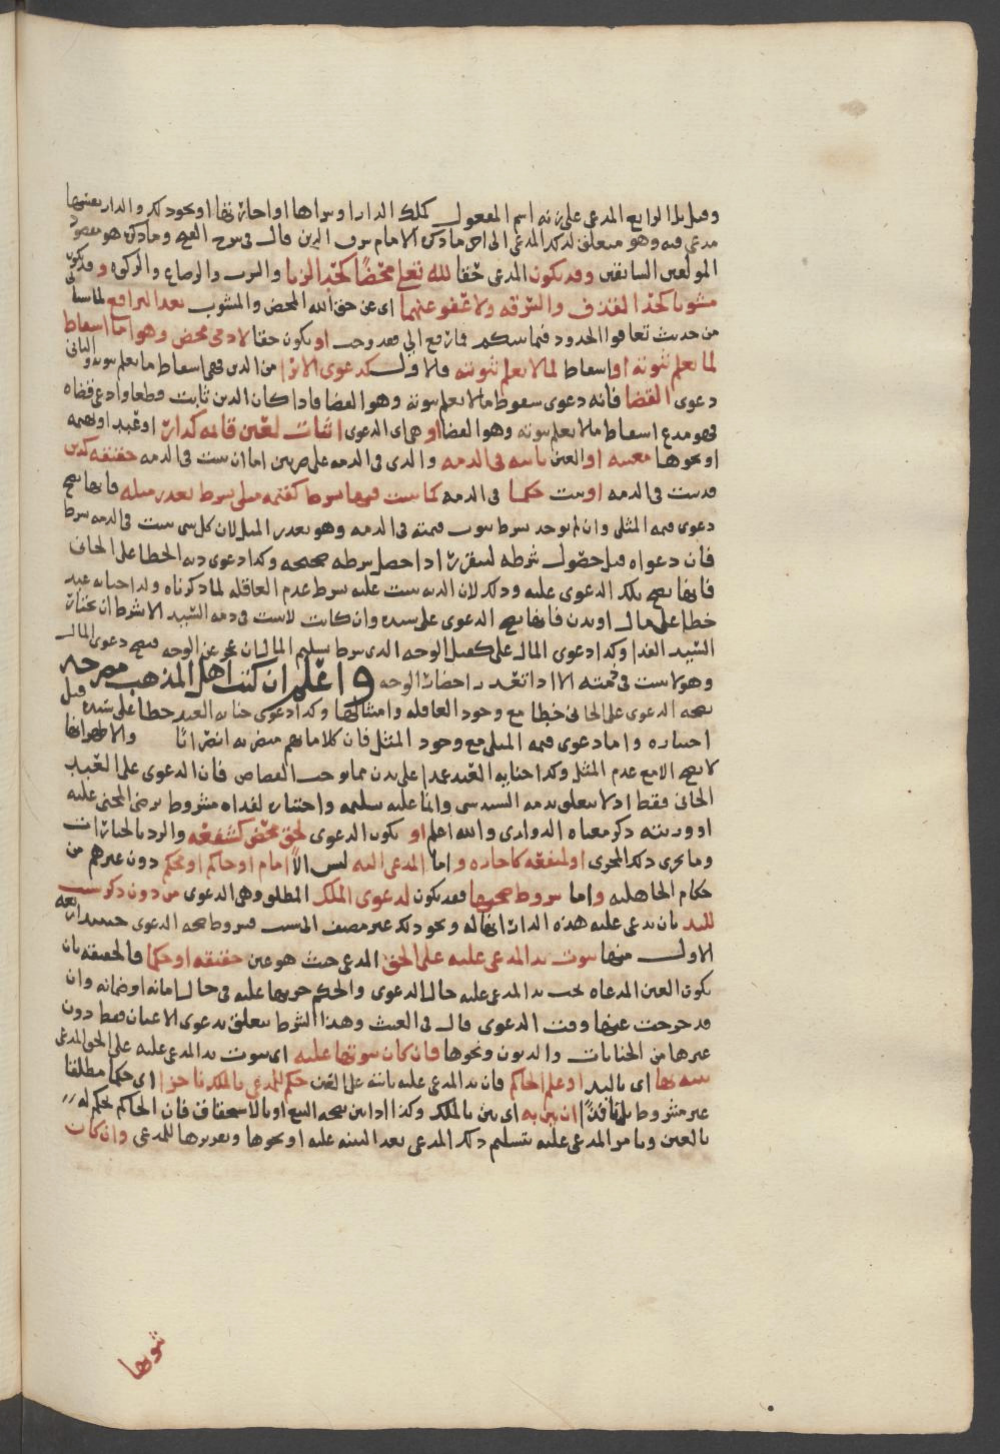 وقيل بل الرابع المدعى على زنة اسم المفعول كملك الدار او شراها او اجارتها او نحو ذلك والدار بعينها
مدعى فيه وهو متعلق لذلك المدعى الى اخر ما ذكره الامام شرف الدين قال في شرح الفتح وما ذكره هو مقصود
المولفين السابقين وقد يكون المدعى حقا لله تعلى محضًا كحد الزنا والشرب والرضاع والزكوه وقد يكون
مشوبا كحد القذف والسرقه ولا عفو عنهما اي عن حق الله المحض والمشوب بعد الترافع لما سياتي
من حديث تعافوا الحدود فيما بينكم فما رفع الي فقد وجب او يكون حقا لادمي محض وهو اما اسقاط
لما يعلم ثبوته او اسقاط لما لا يعلم ثبوته فالاول كدعوى الابرا من الدين فهي اسقاط ما يعلم ثبوته والثاني
دعوى القضا فانه دعوى سقوط ما لا يعلم ثبوته وهو القضا فاذا كان الدين ثابت قطعا وادعى قضاه
فهو مدع اسقاط ما لا يعلم ثبوته وهو القضا او هي اي الدعوى اثبات لعين قائمه كدار او عبد او بهيمه
او نحوها معينه او لعين ثابته في الذمه والذي في الذمه على ضربين اما ان يثبت في الذمه حقيقه كدين
قد ثبت في الذمه او يثبت حكما في الذمه كما يثبت فيها بشرط كقيمه مثلي بشرط تعذر مثله فانها تصح
دعوى قيمه المثلي وان لم يوجد شرط ثبوت قيمته في الذمه وهو تعذر المثل لان كل شي يثبت في الذمه بشرط
فان دعواه قبل حصول شرطه لتقرر اذا حصل شرطه صحيحه وكذا دعوى ديه الخطا على الجاني
فانها تصح تلك الدعوى عليه وذلك لان الديه تثبت عليه بشرط عدم العاقله لما ذكرناه ولذا جنايه عبد
خطا على مال او بدن فانها تصح الدعوى على سيده وان كانت لا تثبت في ذمه السيد الا بشرط ان يختار
السيد الفدا وكذا دعوى المال على كفيل الوجه الذي شرط تسليم المال ان عجز عن الوجه فتصح دعوى المال
وهو لا يثبت في ذمته الا اذا تعذر احضار الوجه واعلم ان كتب اهل المذهب مصرحه
بصحه الدعوى على الجاني خطا مع وجود العاقله وامثالها وكذا دعوى جنايه العبد خطا على سيده قبل
اختياره واما دعوى قيمه المثلي مع وجود المثل فان كلامهم مضطرب اضطرابًا والاظهر انها
لا تصح الا مع عدم المثل وكذا جنايه العبد عمدا على بدن مما يوجب القصاص فان الدعوى على العبد
الجاني فقط اذ لا يتعلق بذمه السيد شي وانما عليه تسليمه واختياره لفداه مشروط برضى المجني عليه
او ورثته ذكر معناه الدواري والله اعلم او يكون الدعوى لحق محض كشفعه والرد بالخيارات
وما جرى ذلك المجرى او لمنفعه كاجاره واما المدعى اليه ليس الا امام او حاكم او محكم دون غيرهم من
حكام الجاهليه واما شروط صحتها فقد يكون لدعوى الملك المطلق وهي الدعوى من دون ذكر سبب
لليد بان يدعي عليه هذه الدار انها له ونحو ذلك غير مضيف الى سبب فشروط صحه الدعوى حينئذ اربعه
الاول منها ثبوت يد المدعى عليه على الحق المدعى حيث هو عين حقيقه او حكما فالحقيقه بان
يكون العين المدعاه تحت يد المدعى عليه حال الدعوى والحكم جريها عليه في حال امانه او ضمانه وان
قد خرجت عنها وقت الدعوى قال في الغيث وهذا الشرط يتعلق بدعوى الاعيان فقط دون
غيرها من الجنايات والديون ونحوها فان كان ثبوتها عليه اي ثبوت يد المدعى عليه على الحق المدعى
ببينه بها اي باليد او علم الحاكم فان يد المدعى عليه ثابته على العين حكم للمدعي بالملك ناجزا اي حكما مطلقا
غير مشروط ان بين به اي بين بالملك وكذا اذا بين بصحه البيع او بالاستحقاق فان الحاكم يحكم له
بالعين ويامر المدعى عليه بتسليم ذلك المدعى بعد البينه عليه او نحوها وتقريرها للمدعي وان كان
ثبوتها